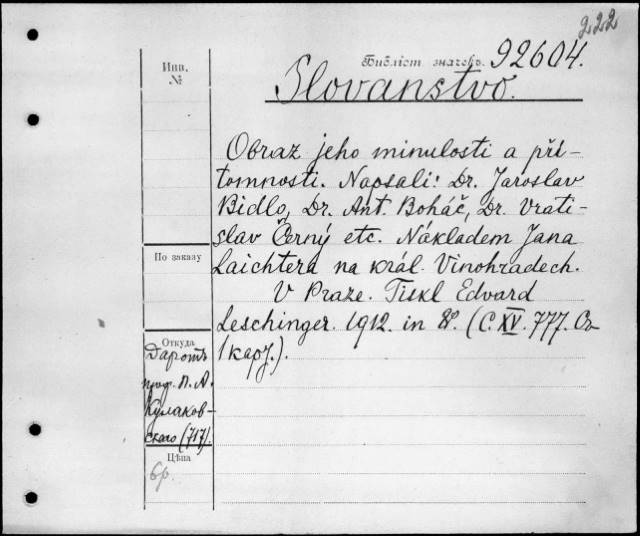 222
Библіот. значекъ. 92604.
Инв.
№
Slovanstvo.
Obraz jeho minulosti a pří-
tomnosti. Napsali: Dr. Jaroslav
Bidlo, Dr. Ant. Boháč, Dr. Vrati-
slav Černý etc. Nákladem Jana
Laichtera na král. Vinohradech.
V Praze. Tiskl Edvard
Leschinger. 1912. in 8º. (C. XV. 777. Съ
1 карт.).
По заказу
Откуда
Даромъ
проф. П. А.
Кулаков-
скаго (717).
Цѣна
6р.